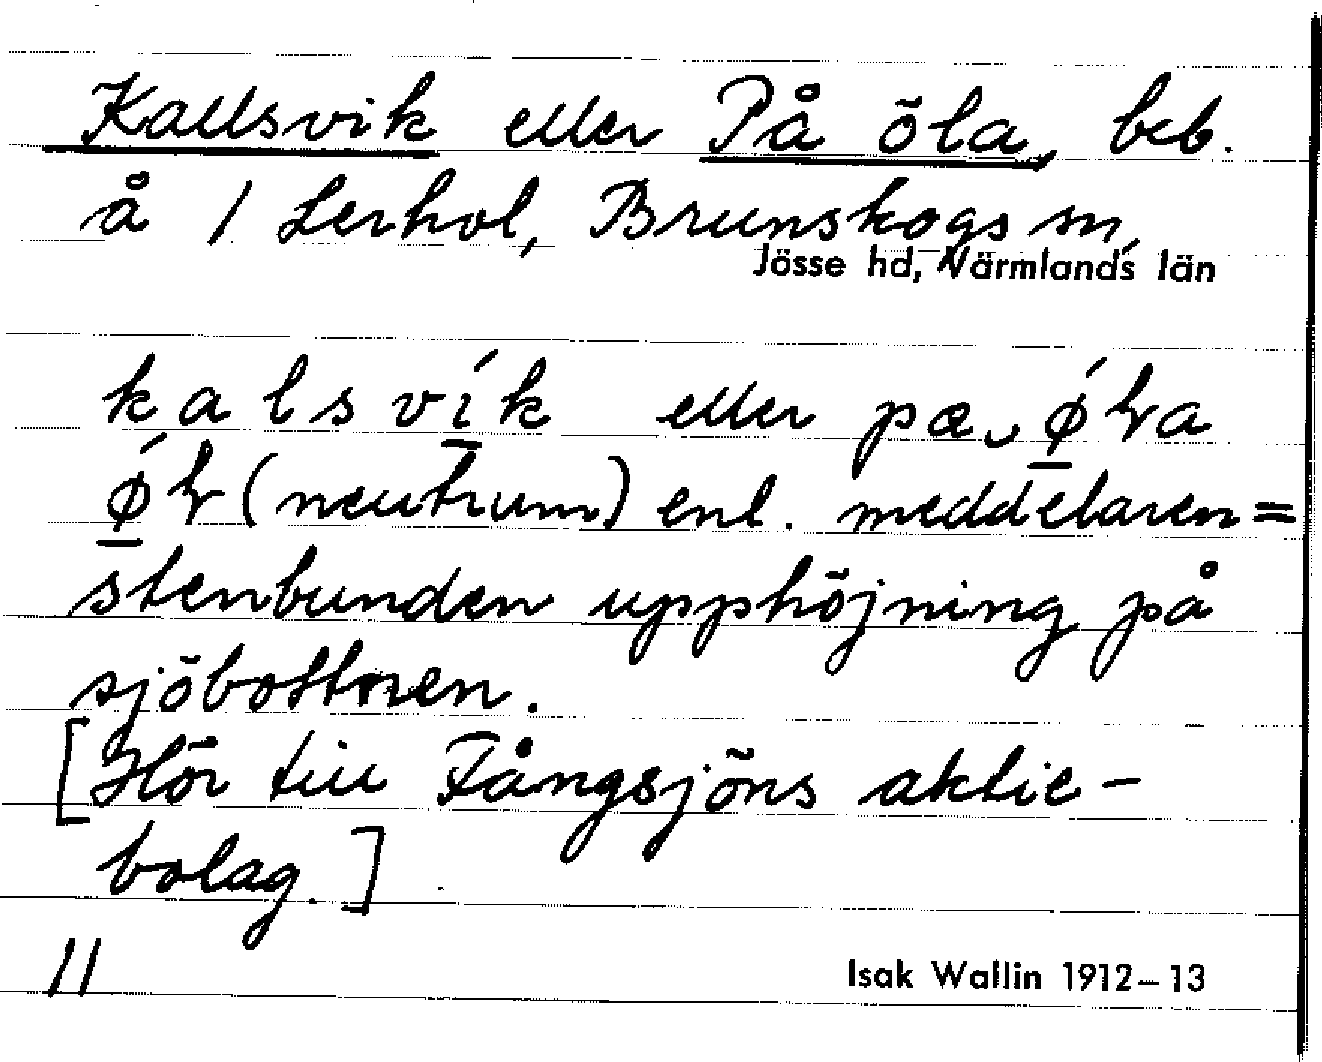 Kallsvik eller På öla, beb.
å 1 Lerhol, Brunskogs sn,
Jösse hd, Värmlands län
kalsvík eller pæ ǿła
ǿł (neutrum) enl. meddelaren =
stenbunden upphöjning på
sjöbottnen.
[Hör till Fångsjöns aktie-
bolag.]
11
Isak Wallin 1912–13